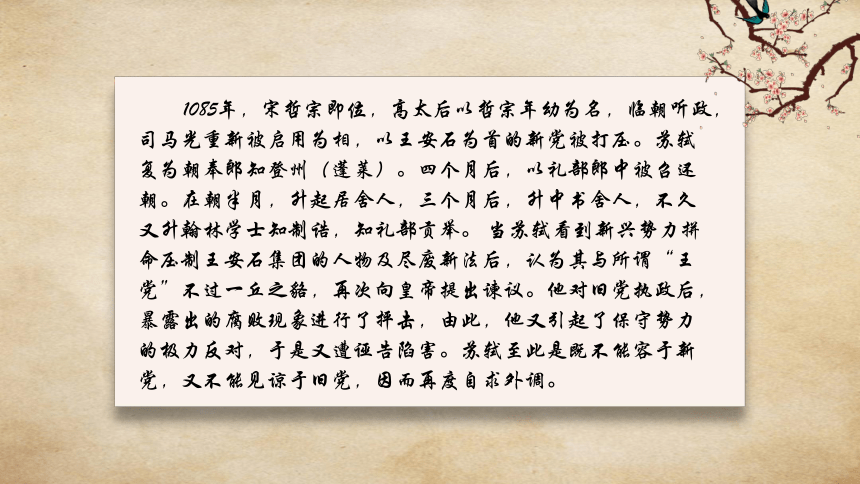 1085年，宋哲宗即位，高太后以哲宗年幼为名，临朝听政，
司马光重新被启用为相，以王安石为首的新党被打压。苏轼
复为朝奉郎知登州（蓬莱）。四个月后，以礼部郎中被召还
朝。在朝半月，升起居舍人，三个月后，升中书舍人，不久
又升翰林学士知制诰，知礼部贡举。 当苏轼看到新兴势力拼
命压制王安石集团的人物及尽废新法后，认为其与所谓“王
党”不过一丘之貉，再次向皇帝提出谏议。他对旧党执政后，
暴露出的腐败现象进行了抨击，由此，他又引起了保守势力
的极力反对，于是又遭诬告陷害。苏轼至此是既不能容于新
党，又不能见谅于旧党，因而再度自求外调。